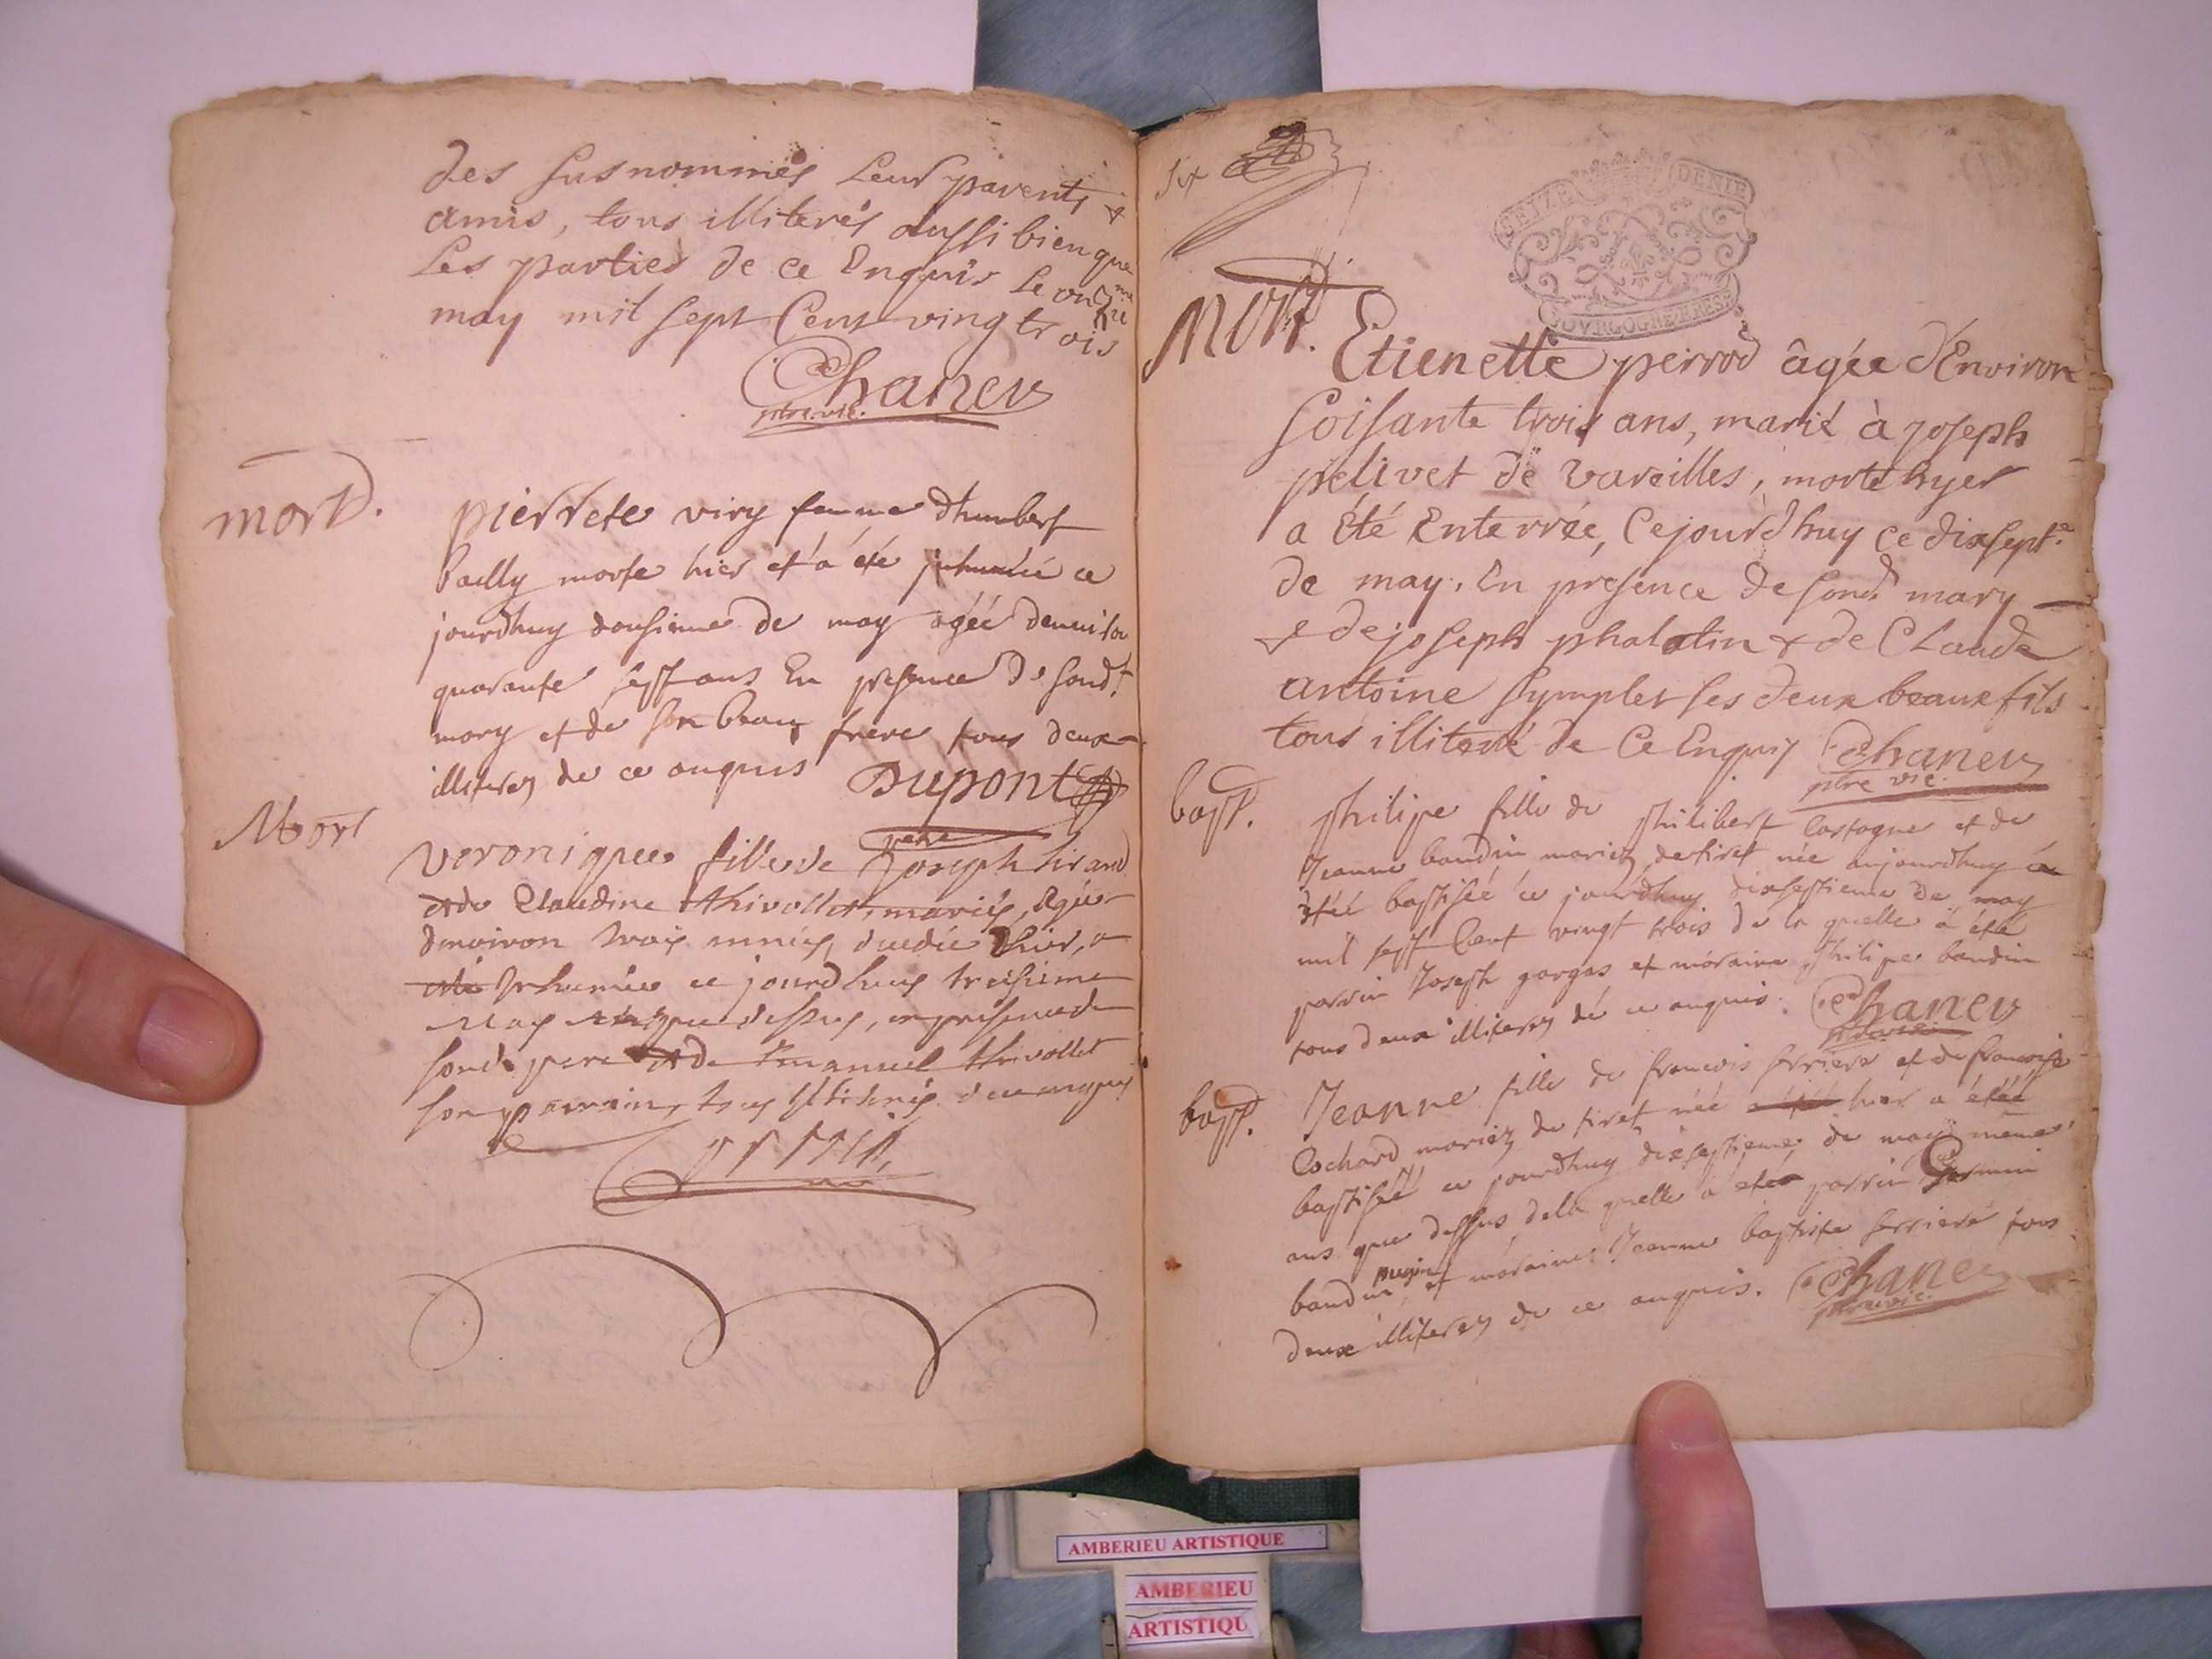 des susnommés Leur parents &
amis, tous illiterés aussi bien que
Les parties de ce Enquis Le onzie me
may mil sept Cent ving trois
Chaneu
ptre vic.
mort.
pierrete viry femme dhumbert
bailly morte hier et a été inhumée ce
jourdhuy dousieme de may agée denviron
quarante sept ans En presence de sond.t
mary et de son beau frere tous deux
illiteres de ce enquis Dupont
Mort
veronique fille de Joseph
et de Claudine thivollet, mariés, agée
denviron trois années, decedée hier, a
été Inhumée ce jourdhuy treisieme
May dessus, en presence de
sond. pere et de Emanuel thivollet
son parrain, tous illiterés de ce enquis
six
SEIZE DENIE
BOVRGOGNE BRESSE
Mort.
Etienette perrod âgée d'Environ
soisante trois ans, marié à joseph
pelivet de vareilles, morte hyer
a été Enterrée, Cejourdhuy ce dixsept.e
de may. En presence de sond. mary
& de joseph phalatin & de Claude
antoine sympler ses deux beaux fils
tous illiteré de Ce Enquis Chaneu
ptre vic.
bapt.
philipe fille de philibert Castagne et de
Jeanne baudin mariez de tiret née aujourdhuy a
étéé baptisée ce jourdhuy dixseptieme de may
mil sept Cent vingt trois de la quelle a été
parrin Joseph gargas et maraine philipe baudin
tous deux illiteres de ce enquis. Chaneu
ptre vic.
bapt.
Jeanne fille de francois ferriere et de francoise
Cochard mariez de tiret née hier a étéé
baptisée ce jourdhuy dixseptieme de may meme
ans que dessus de la quelle a été parrin Germain
baudin et maraine Jeanne baptiste ferriere tous
deux illiteres de ce enquis. Chaneu
ptre vic.
AMBERIEU ARTISTIQUE
AMBERIEU
ARTISTIQU